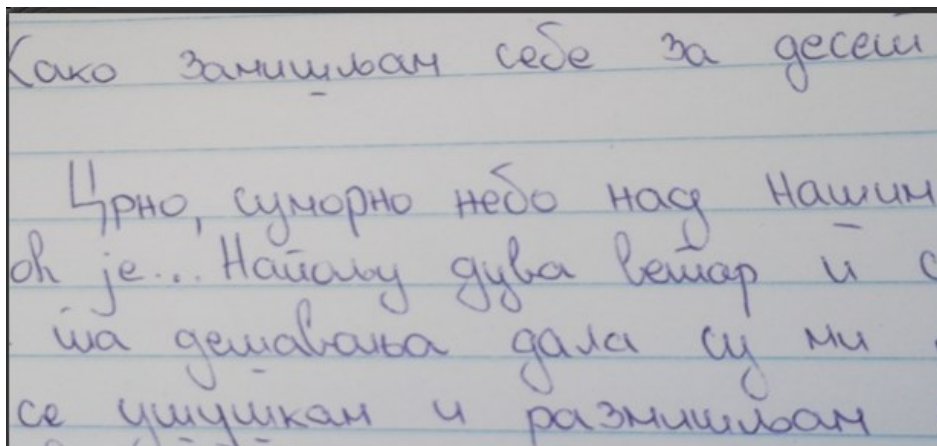 Како замишљам себе за десет
Црно, суморно небо над нашим
оћ је... Напољу дува ветар и с
та дешавања дала су ми
се ушушкам и размишљам